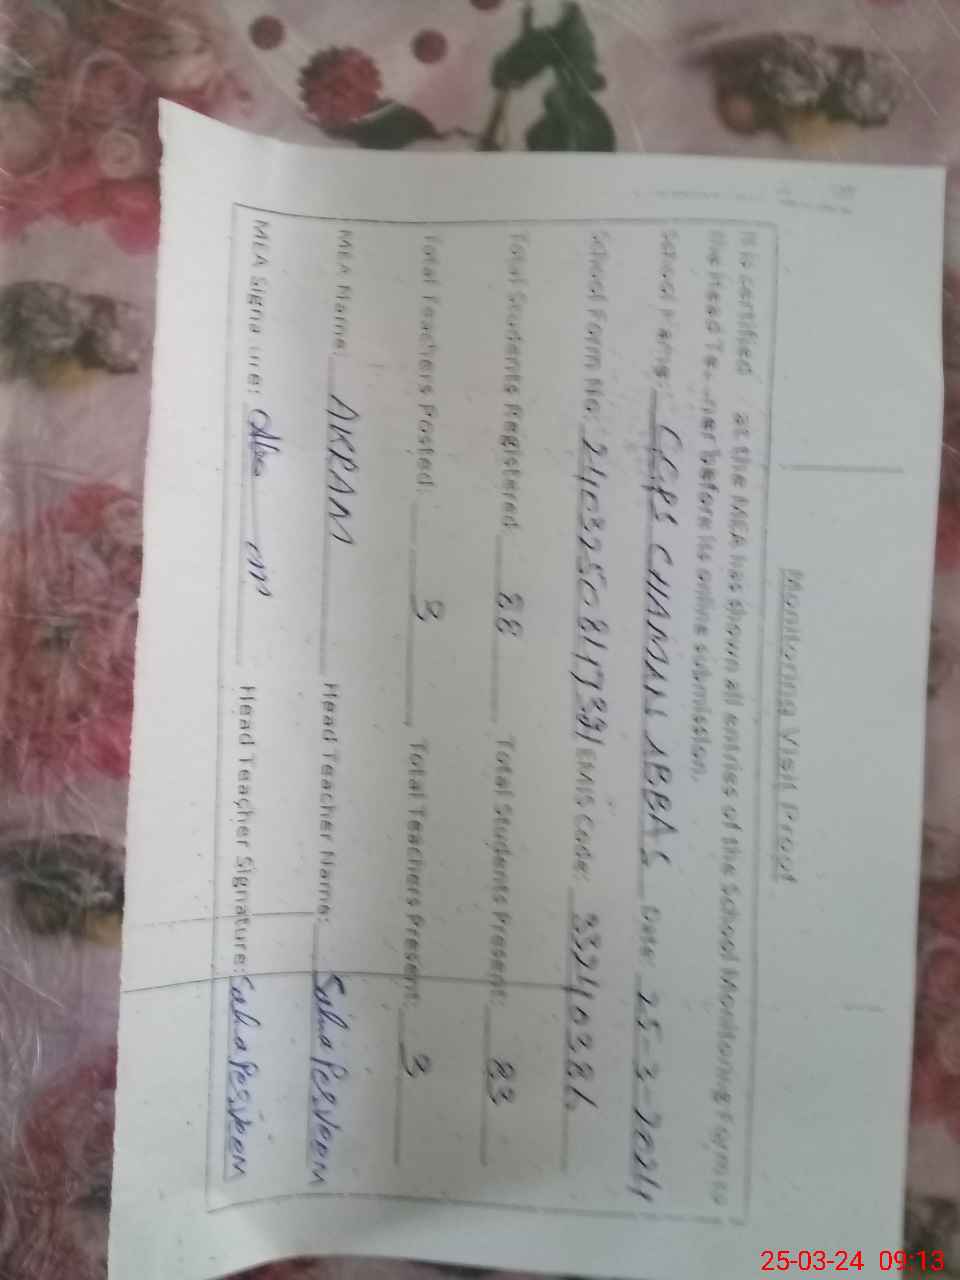 Monitoring Visit Proof
It is certified at the MEA has shown all entries of the School Monitoring Form to
the Head before its online submission.
School Name: GGPS CHAMAN ABBAS Date: 25-3-2024
School Form No. EMIS Code:
Total Students Registered: 88 Total Students Present: 83
Total Teachers Posted: 3 Total Teachers Present: 3
MEA Name: AKRAM Head Teacher Name: Salma Perveen
MEA Signature: Head Teacher Signature: Salma Perveen
25-03-24 09:13